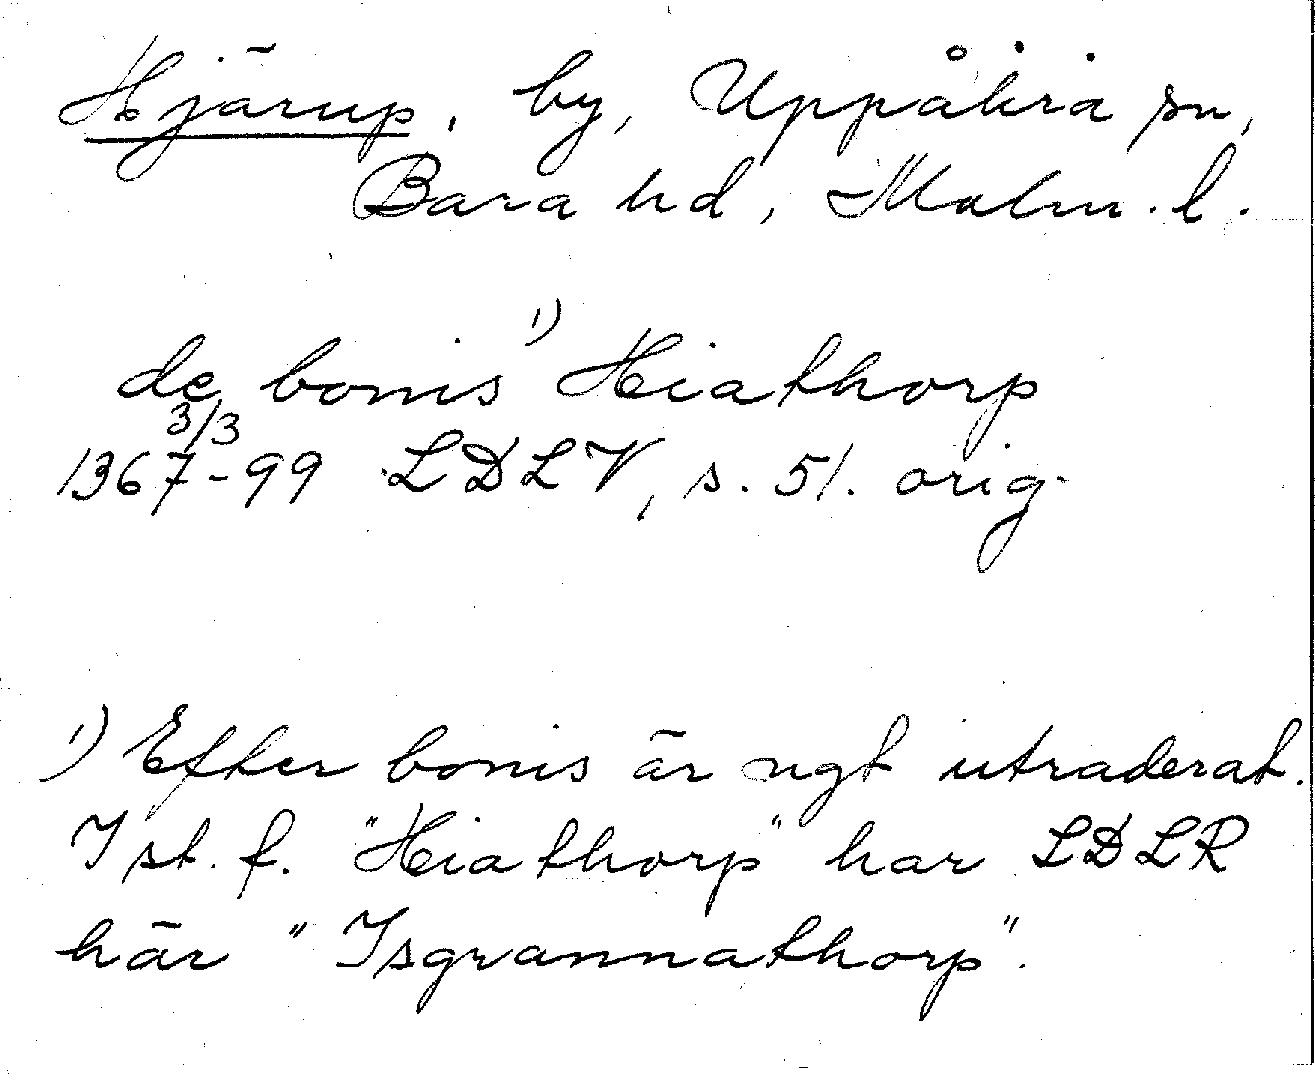 Hjärup, by, Uppåkra sn,
Bara hd, Malm. l.
de bonis ¹) Hiathorp
1367 3/3 - 99 LDLV, s. 51. orig.
¹) Efter bonis är ngt utraderat.
I st. f. "Hiathorp" har LDLR
här "Isgrannathorp".